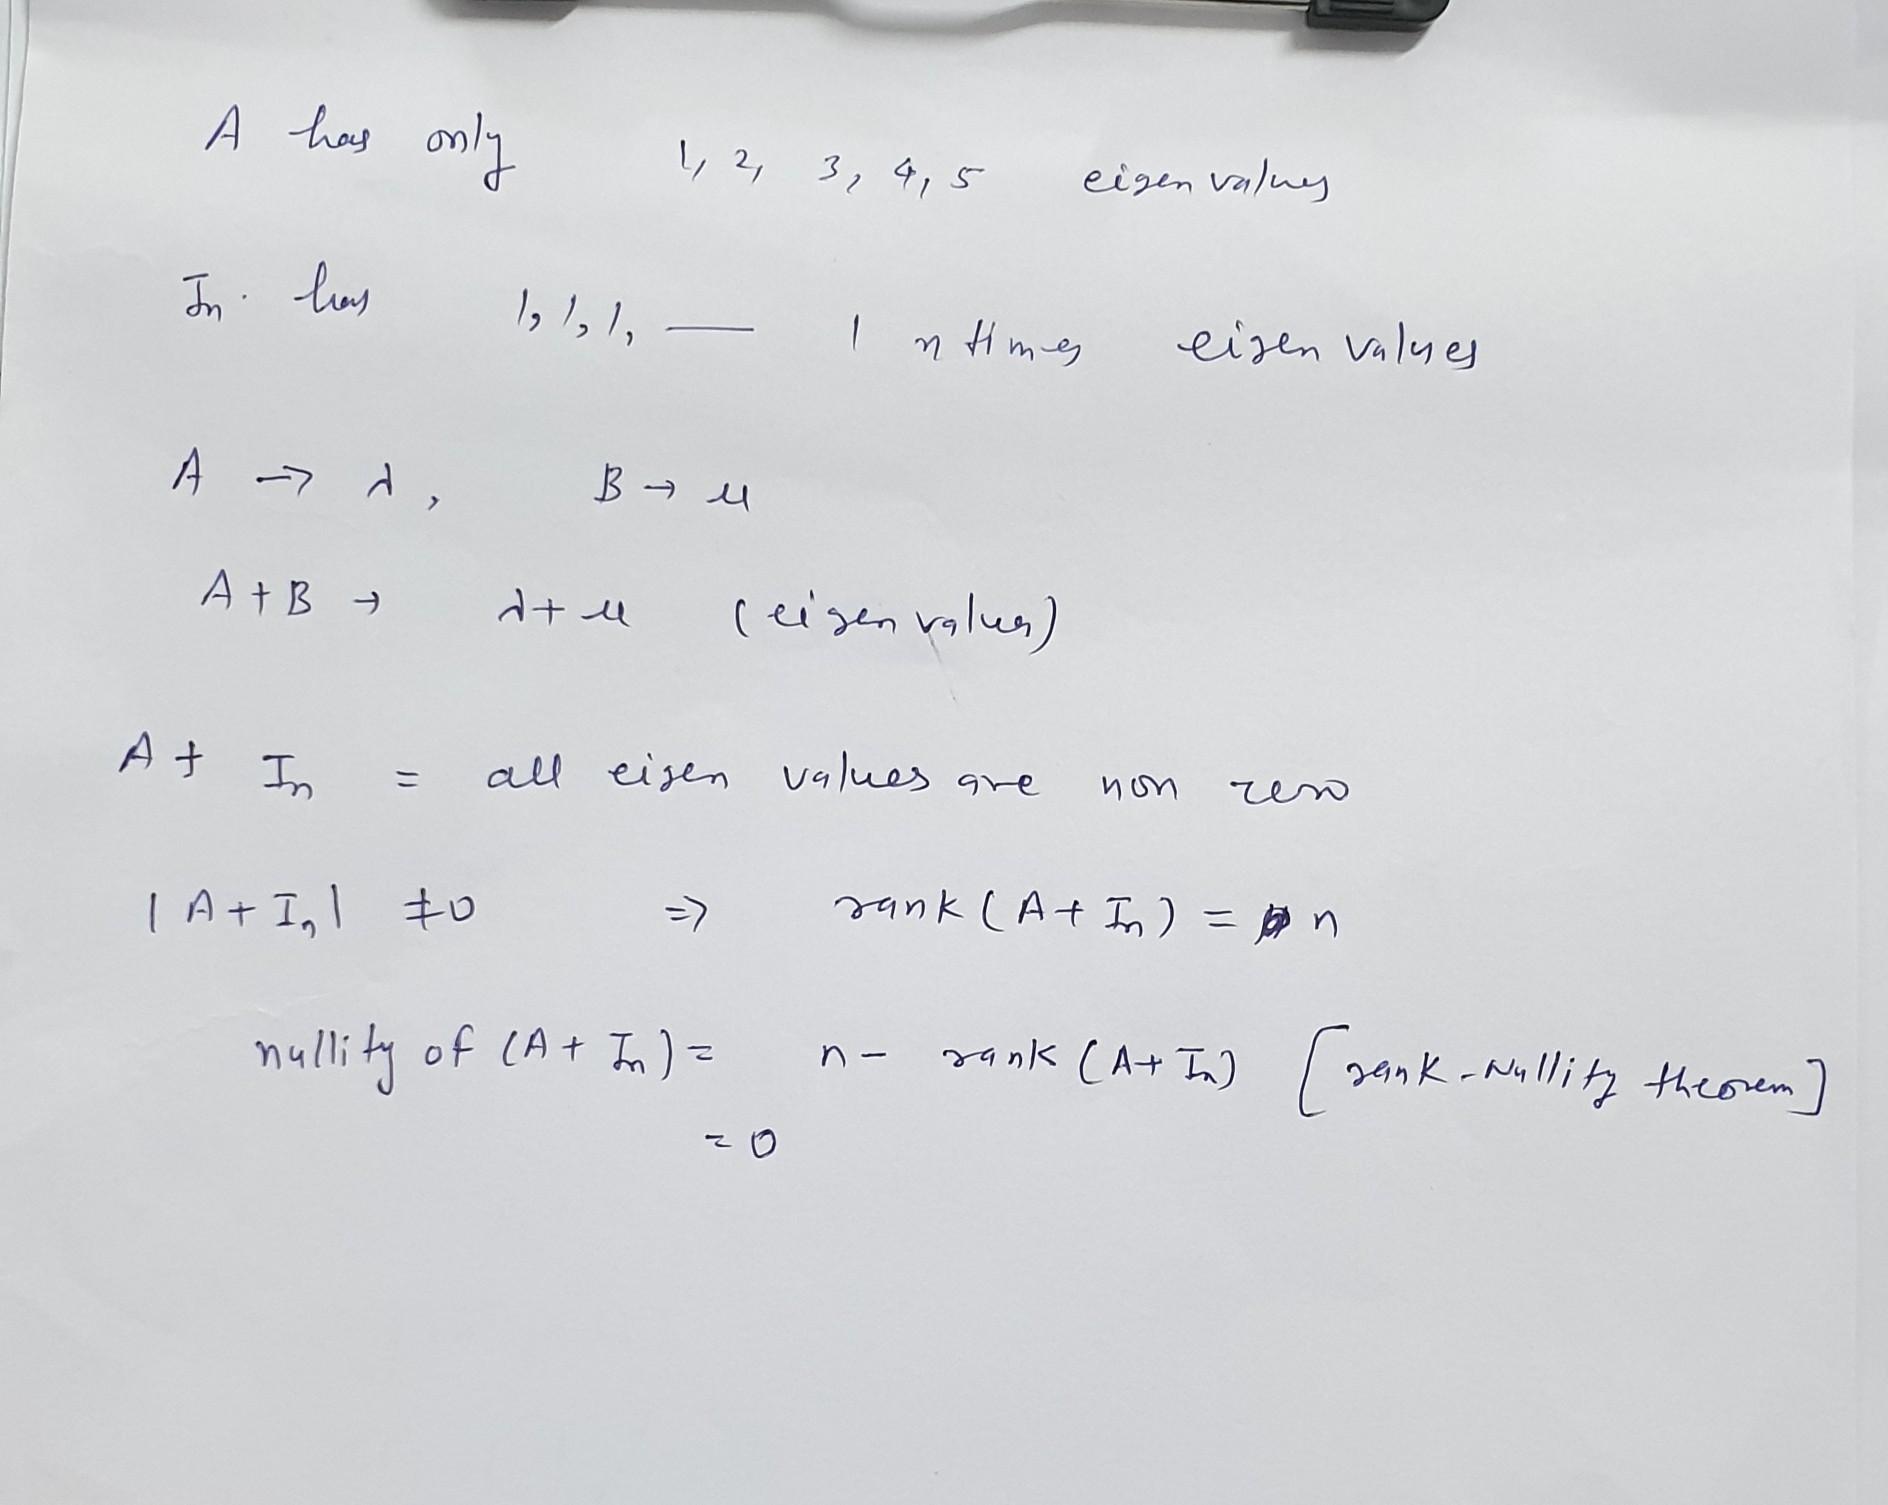 A has only 1, 2, 3, 4, 5 eigen values
In has 1, 1, 1, — 1 n times eigen values
A → λ, B → μ
A + B → λ + μ (eigen values)
A + In = all eigen values are non zero
|A + In| ≠ 0 ⇒ rank (A + In) = n
nullity of (A + In) = n - rank (A + In) [rank-Nullity theorem]
= 0